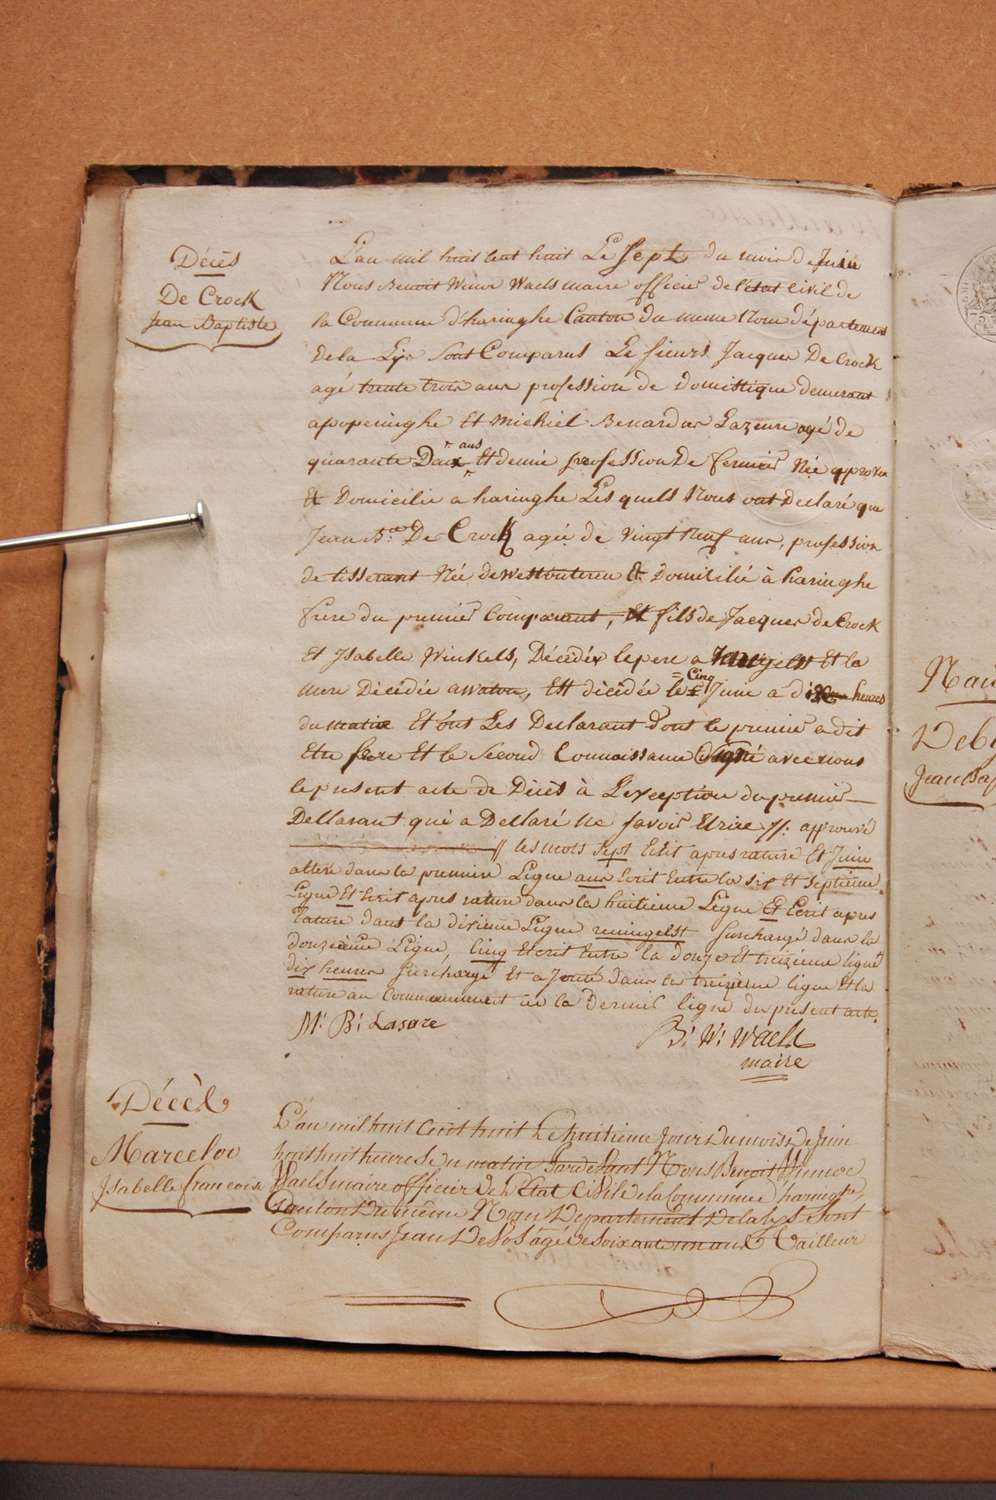 Décès
De Crock
Jean Baptiste
L'an mil huit cent huit Le Sept du mois de Juin
Nous Benoit Winoc Waels maire officier de l'état Civil de
la Commune d'haringhe Canton du meme Nom département
de la Lys Sont Comparus Le sieurs Jacques De Crock
agé trente trois ans profession de Domistique demeurant
apoperinghe Et Michiel Benardus Lazeure agé de
ans
quarante Deux Et demie profession De fermier Née approven
Et Domicilie a haringhe Les quels Nous ont Declaré que
Jean Bte De Crock agée de vingt Neuf ans, profession
de tisserant Née de westouteren & Domicilié à haringhe
frere du premier Comparant, Et fils de Jacques de Crock
Et Isabelle Winkels, Décédés le pere a Reningelst Et la
Cinq
mere Décédée awatou, Est décédée le Juin a dix heures
du matin Et ont Les Declarant dont le premier a dit
Etre frere Et le Second Connoissance Signé avec nous
le present acte de Décès à L'exception du premier
Dellarant qui a Dellaré Ne savoir Ecrire //: approuvé
// les mots Sept Ecrit apres rature Et Juin
altere dans la premiere Ligne ans Ecrit Entre la six Et Septieme
Ligne Et Ecrit apres rature dans la huitieme Ligne Et Ecrit apres
rature dans la dixieme Ligne reningelst surchargé dans la
douzieme Ligne, Cinq Et crit Entre la douze Et treizieme ligne
dix heures surchargé Et a Jouté dans la treizieme ligne Et la
rature au Commencement de la Dernier ligne du présent acte.
M: B: Lasure
B: W: Waels
maire
Décès
Marcelor
Isabelle francoise
L'an mil huit Cent huit Le huitieme Jour Du mois De Juin
huit heures du matin Pardevant Nous Benoit Winoc
Waels maire officier de L'Etat Civile de la Commune d'haringhe
Canton Du même Nom Departement De la Lys Sont
Comparus Jean De Vos âgé de Soixante un ans Tailleur
Nai
Deb
Jean Bap